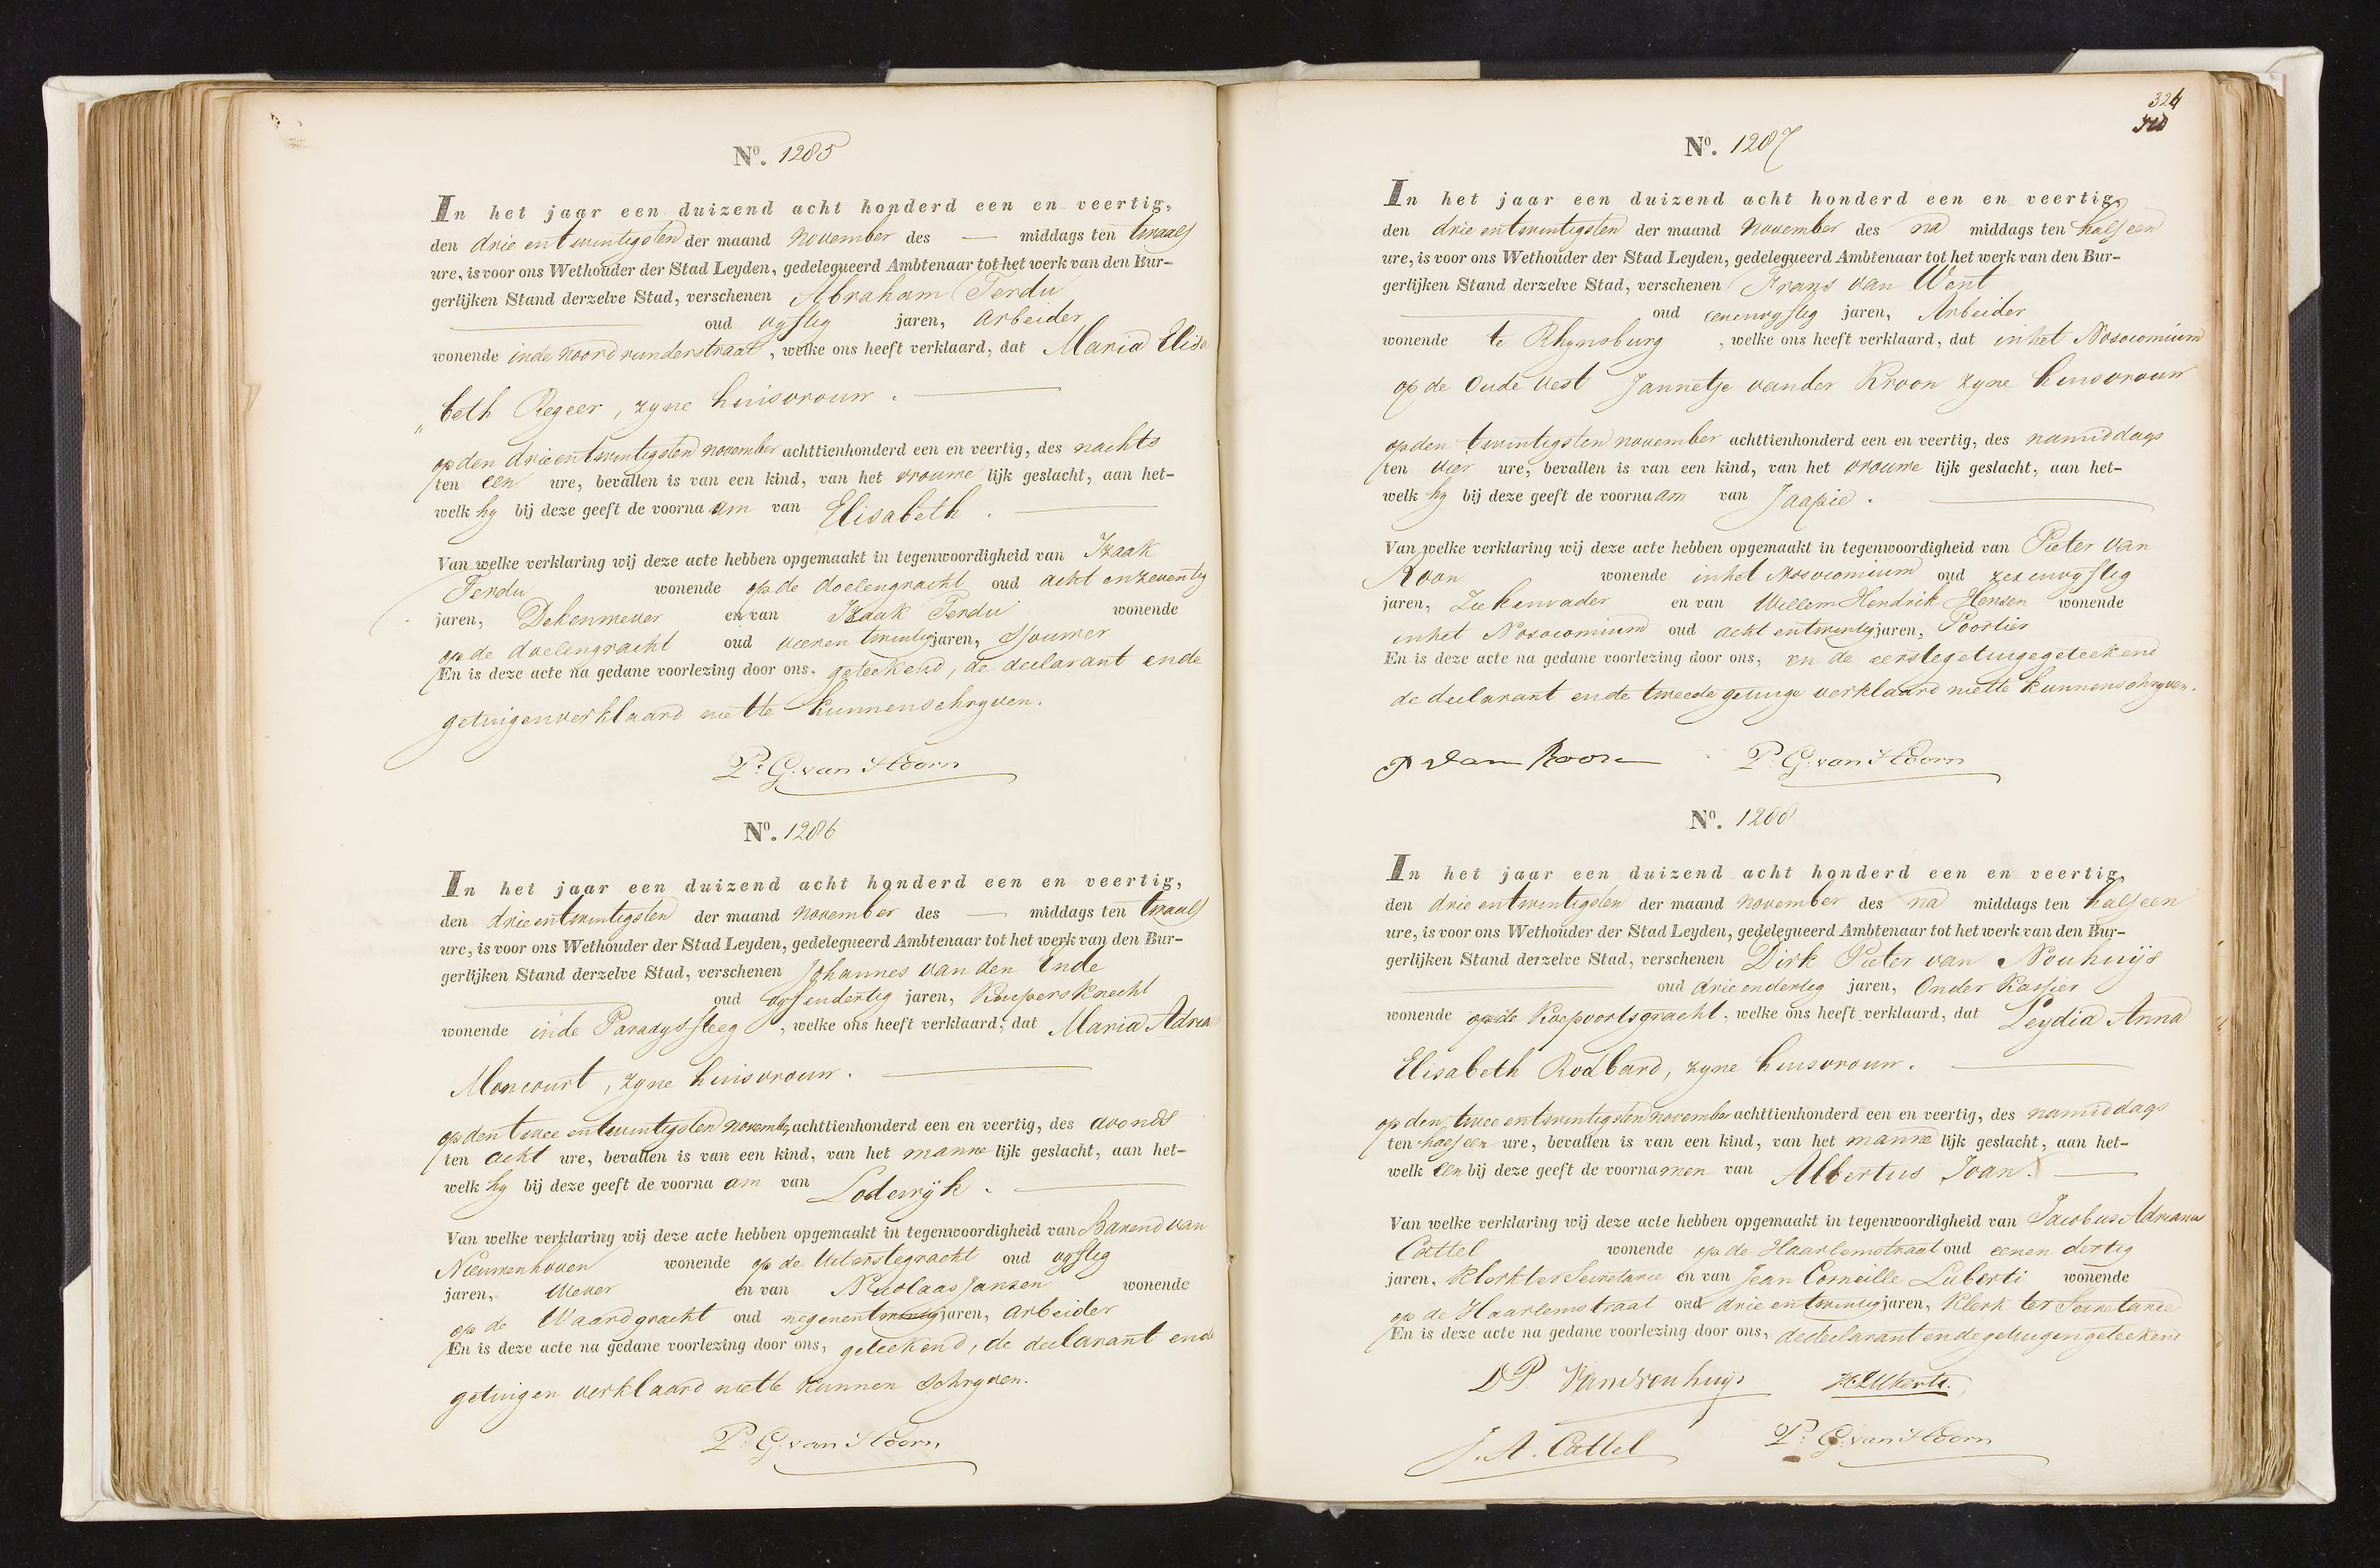 Nº. 1285
In het jaar een duizend acht honderd een en veertig,
den drie en twintigsten der maand november des — middags ten twaalf
ure, is voor ons Wethouder der Stad Leyden, gedelegueerd Ambtenaar tot het werk van den Bur-
gerlijken Stand derzelve Stad, verschenen Abraham Ferdu
oud vyftig jaren, Arbeider
wonende inde Noordrunderstraat, welke ons heeft verklaard, dat Maria Elisa
„beth Regeer, zyne huisvrouw.
op den drieentwintigsten november achttienhonderd een en veertig, des nachts
ten een ure, bevallen is van een kind, van het vrouwe lijk geslacht, aan het-
welk hy bij deze geeft de voornaam van Elisabeth.
Van welke verklaring wij deze acte hebben opgemaakt in tegenwoordigheid van Izaak
Ferdu wonende op de doelengracht oud acht en zeventig
jaren, Dekenwever en van Izaak Ferdu wonende
op de doelengracht oud vierentwintig jaren, Sjouwer
En is deze acte na gedane voorlezing door ons, geteekend, de declarant ende
getuigen verklaard niette kunnen schryven.
P. G. van Hoorn
Nº. 1286
In het jaar een duizend acht honderd een en veertig,
den drieentwintigsten der maand November des — middags ten twaalf
ure, is voor ons Wethouder der Stad Leyden, gedelegueerd Ambtenaar tot het werk van den Bur-
gerlijken Stand derzelve Stad, verschenen Johannes van den Ende
oud vyfendertig jaren, Kuipersknecht
wonende inde Paradyssteeg, welke ons heeft verklaard, dat Maria Adria
Moncourt, zyne huisvrouw.
op den twee entwintigsten novemb. achttienhonderd een en veertig, des avonds
ten acht ure, bevallen is van een kind, van het manne lijk geslacht, aan het-
welk hy bij deze geeft de voornaam van Lodewyk.
Van welke verklaring wij deze acte hebben opgemaakt in tegenwoordigheid van Barend van
Nieuwenhoven wonende op de Uiterstegracht oud vyftig
jaren, Wever en van Nicolaas Jansen wonende
op de Waardgracht oud negenentwintig jaren, arbeider
En is deze acte na gedane voorlezing door ons, geteekend, de declarant ende
getuigen verklaard niette kunnen schryven.
P. G. van Hoorn
324
Nº. 1287
In het jaar een duizend acht honderd een en veertig,
den drie entwintigsten der maand November des na middags ten half een
ure, is voor ons Wethouder der Stad Leyden, gedelegueerd Ambtenaar tot het werk van den Bur-
gerlijken Stand derzelve Stad, verschenen Frans van Went
oud eenenvyftig jaren, Arbeider
wonende te Rhynsburg, welke ons heeft verklaard, dat inhet Nosocomium
op de Oude Vest Jannetje vander Kroon zyne huisvrouw
op den twintigsten november achttienhonderd een en veertig, des namiddags
ten vier ure, bevallen is van een kind, van het vrouwe lijk geslacht, aan het-
welk hy bij deze geeft de voornaam van Jaapie.
Van welke verklaring wij deze acte hebben opgemaakt in tegenwoordigheid van Pieter van
Roon wonende inhet Nosocomium oud zesenvyftig
jaren, Ziekenvader en van Willem Hendrik Hensen wonende
inhet Nosocomium oud acht entwintig jaren, Poortier
En is deze acte na gedane voorlezing door ons, en de eerste getuige geteekend
de declarant ende tweede getuige verklaard niette kunnen schryven.
P van Roon P. G. van Hoorn
Nº. 1288
In het jaar een duizend acht honderd een en veertig,
den drie entwintigsten der maand November des na middags ten half een
ure, is voor ons Wethouder der Stad Leyden, gedelegueerd Ambtenaar tot het werk van den Bur-
gerlijken Stand derzelve Stad, verschenen Dirk Pieter van Nouhuijs
oud drie endertig jaren, Onder Kassier
wonende op de Koepoortsgracht, welke ons heeft verklaard, dat Leydia Anna
Elisabeth Rodbard, zyne huisvrouw.
op den twee entwintigsten november achttienhonderd een en veertig, des namiddags
ten half een ure, bevallen is van een kind, van het manne lijk geslacht, aan het-
welk en bij deze geeft de voornamen van Albertus Joan.
Van welke verklaring wij deze acte hebben opgemaakt in tegenwoordigheid van Jacobus Adrianus
Cattel wonende op de Haarlemstraat oud eenen dertig
jaren, Klerk ter Secretarie en van Jean Corneille Luberti wonende
op de Haarlemstraat oud drie entwintig jaren, Klerk ter Secretarie
En is deze acte na gedane voorlezing door ons, de declarant ende getuigen geteekend
D P. van Nouhuijs
J. A. Cattel P. G. van Hoorn